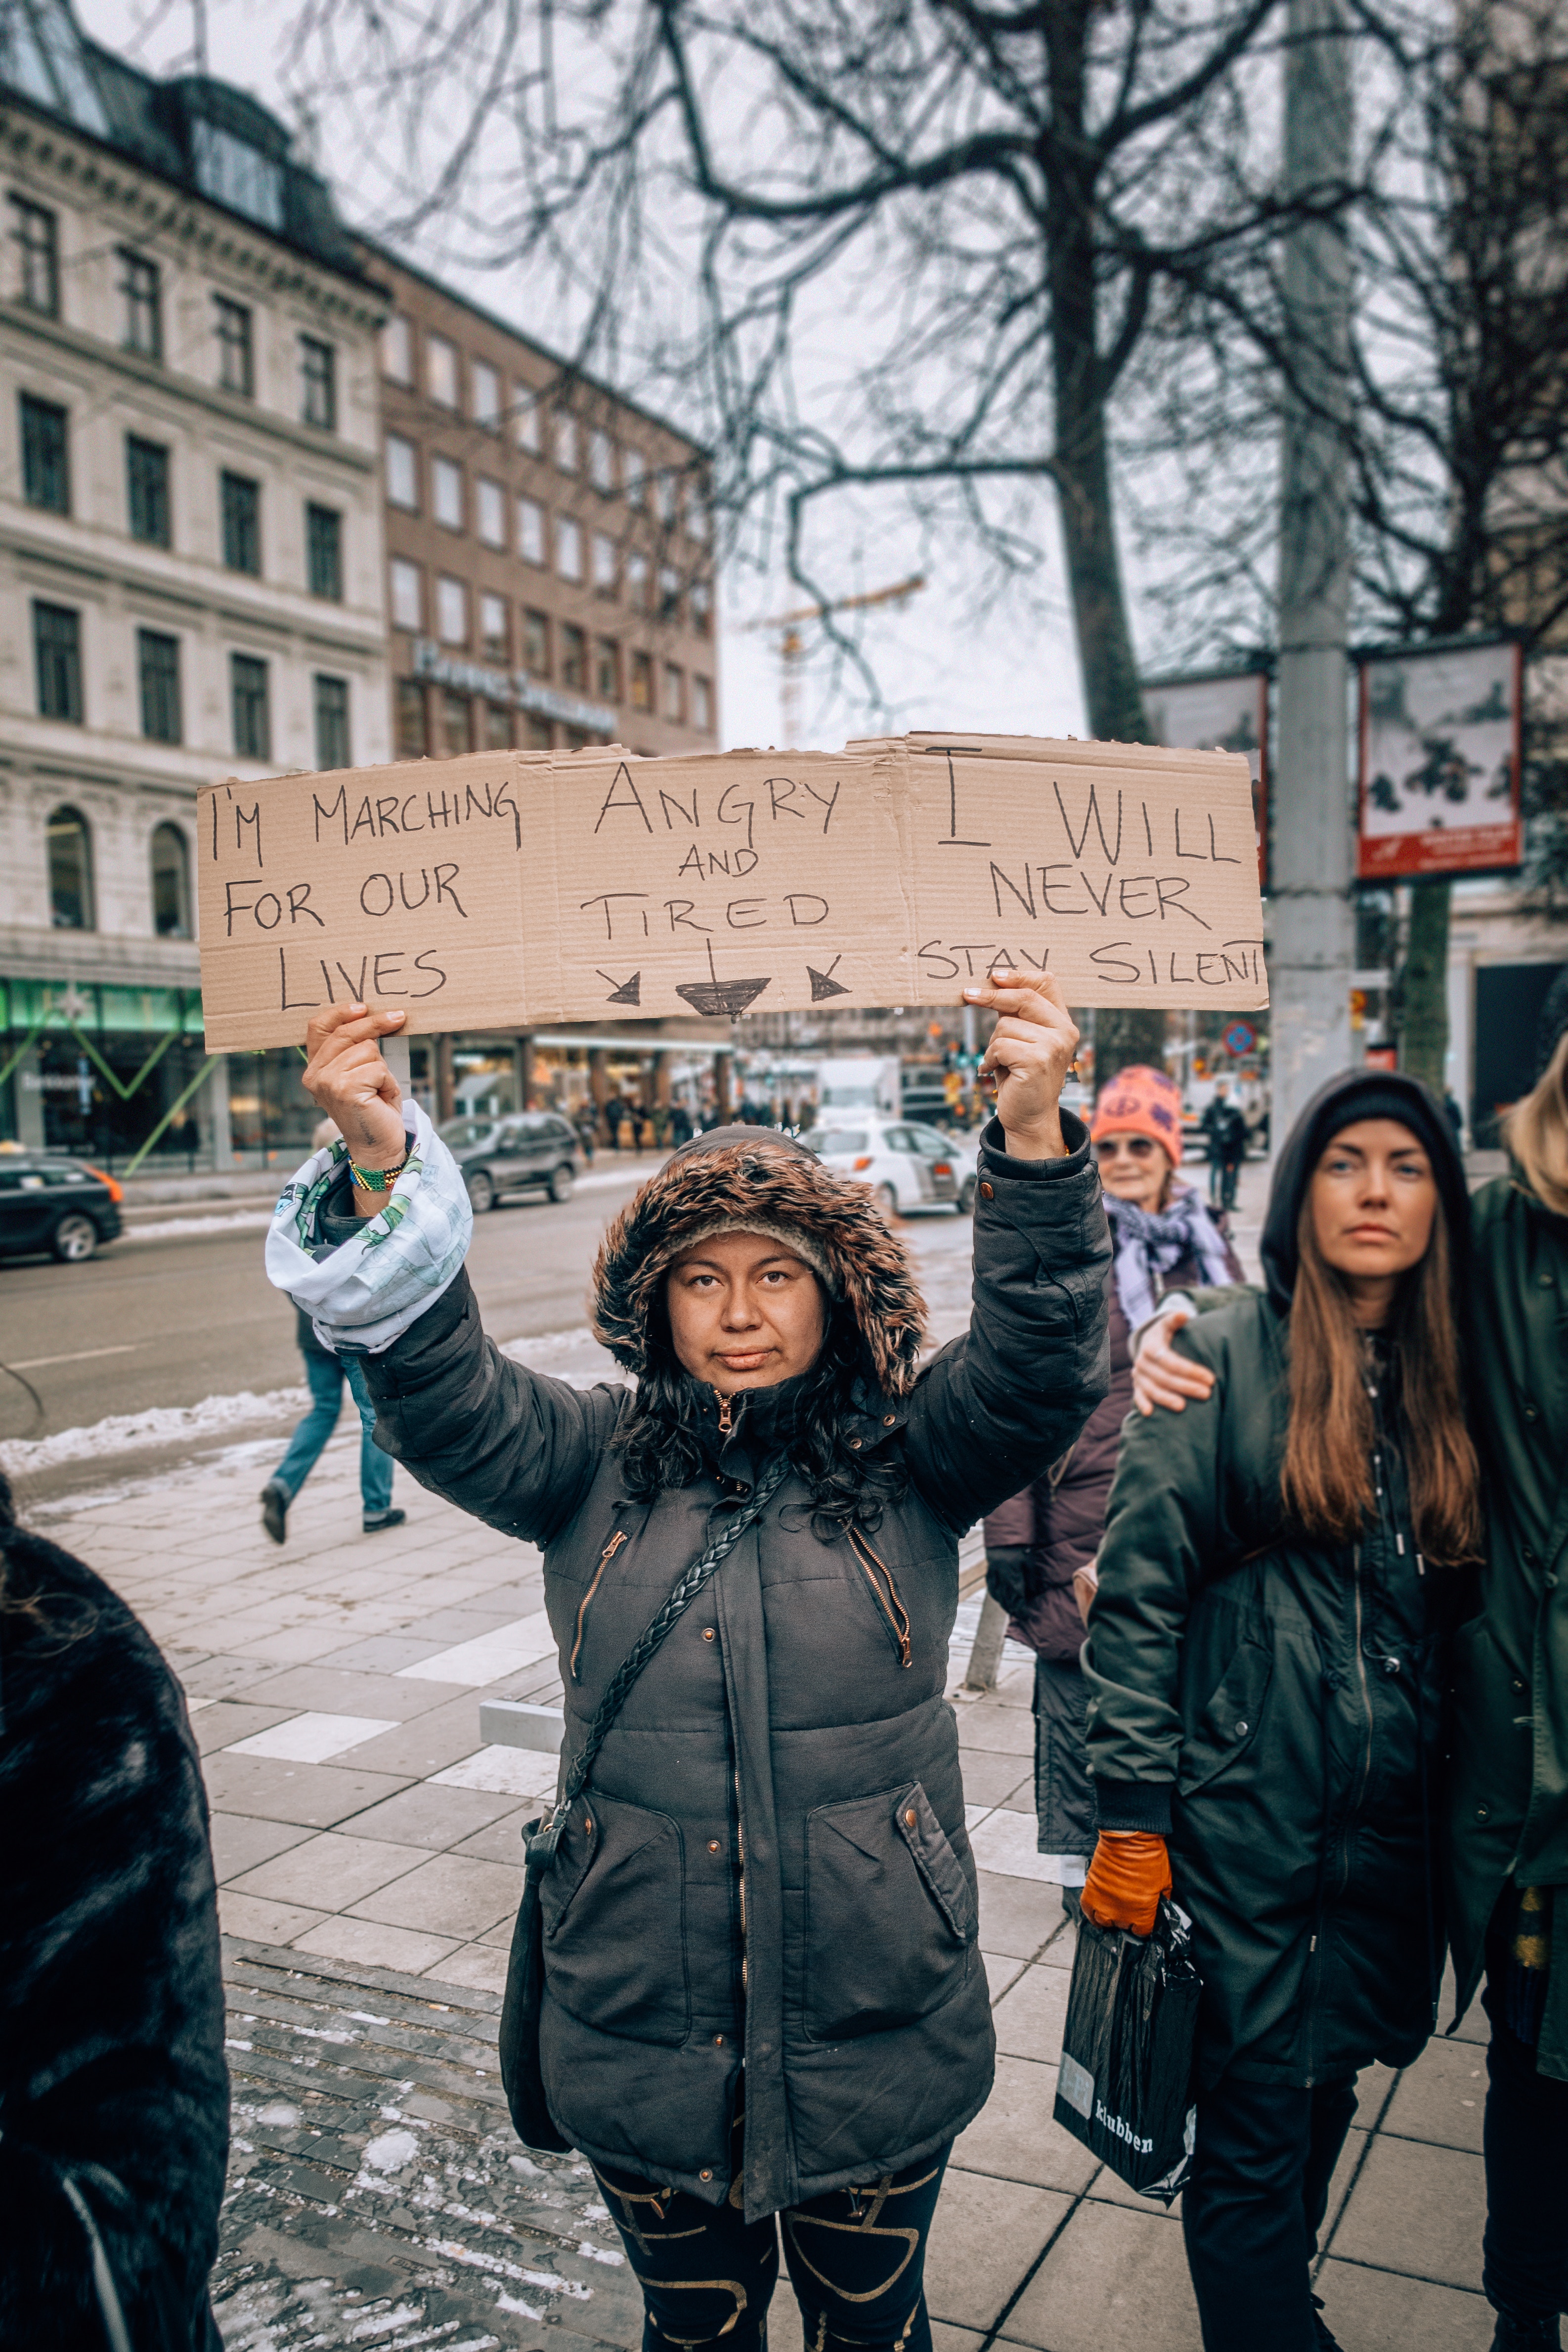 I'M MARCHING
FOR OUR
LIVES
ANGRY
AND
TIRED
I WILL
NEVER
STAY SILENT
klubben